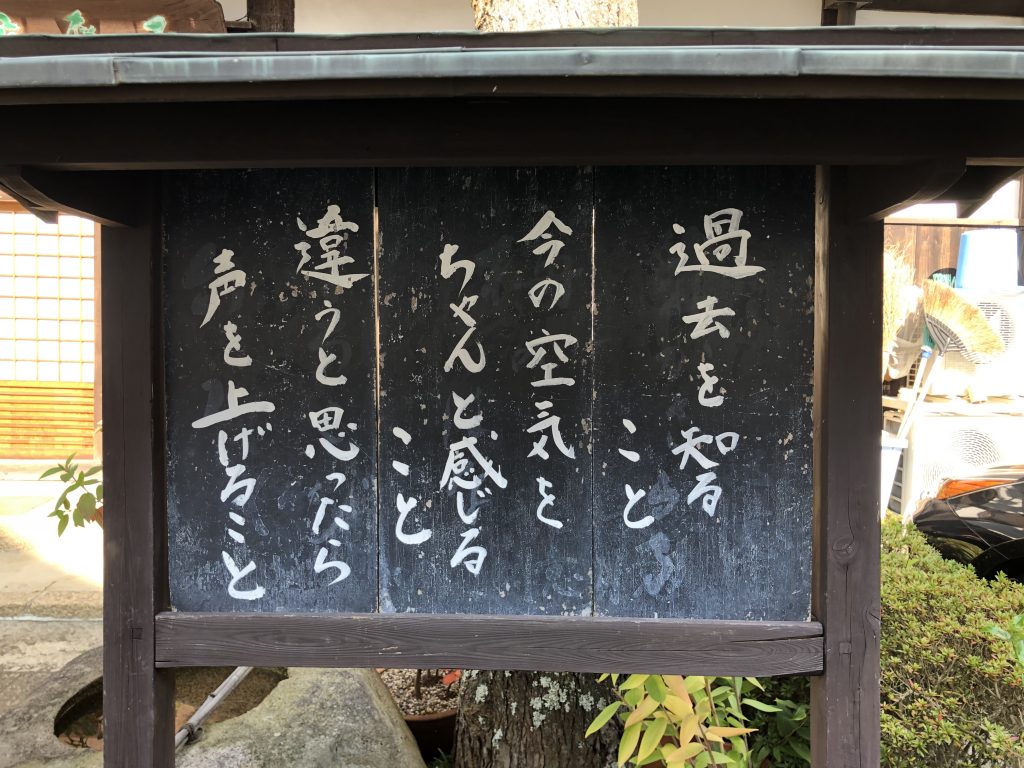 過去を知る
こと
今の空気を
ちゃんと感じる
こと
違うと思ったら
声を上げること